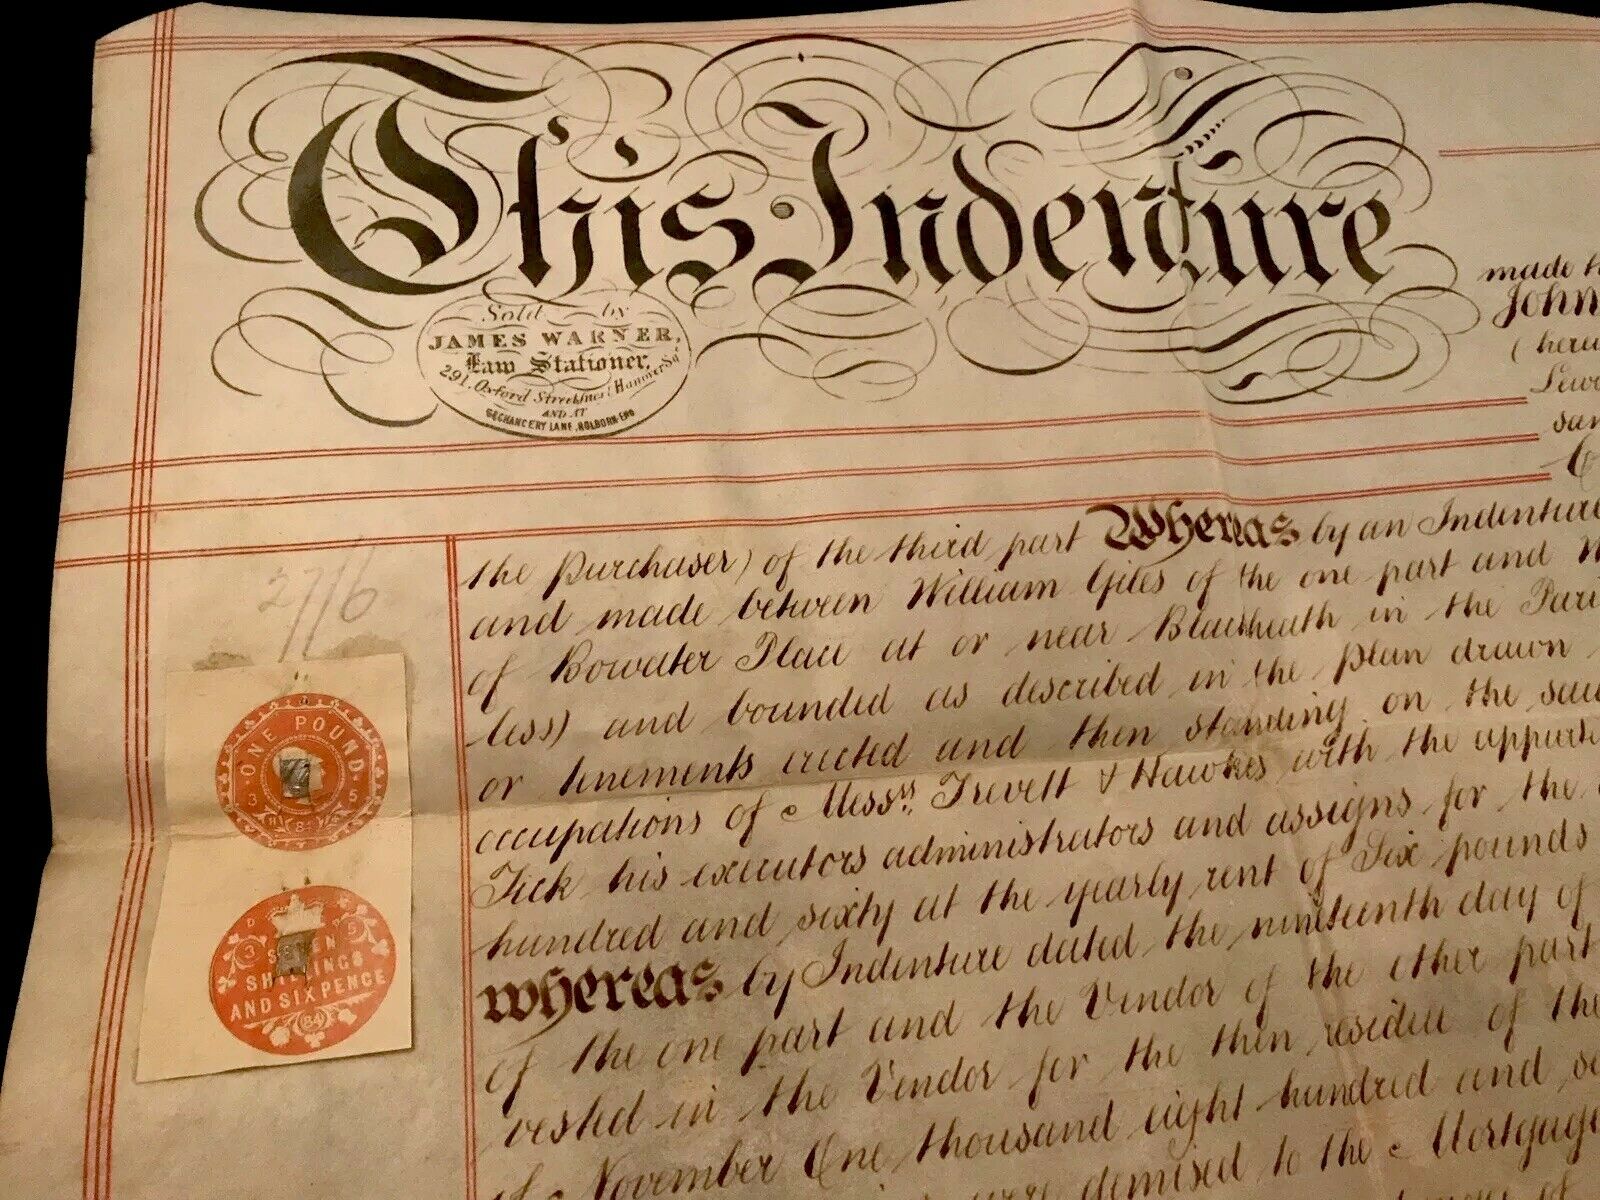 This Indenture
made
John
Sold by
JAMES WARNER,
Law Stationer,
291, Oxford Street,
AND AT
CHANCERY LANE, HOLBORN-END
the purchaser) of the third part Whereas by an Indenture
and made between William Giles of the one part and
of Bowater Place at or near Blackheath in the Pari
less) and bounded as described in the plan drawn
or tenements erected and then standing on the sai
occupations of Messrs. Trevett & Hawkes with the appurte
Tick his executors administrators and assigns for the
hundred and sixty at the yearly rent of Six pounds
whereas by Indenture dated the nineteenth day of
of the one part and the Vendor of the other part
vested in the Vendor for the then residue of the
of November One thousand eight hundred and se
were demised to the Mortgage
27/6
ONE POUND
3 5
D D
3 5
SEVEN
SHILLINGS
AND SIXPENCE
84